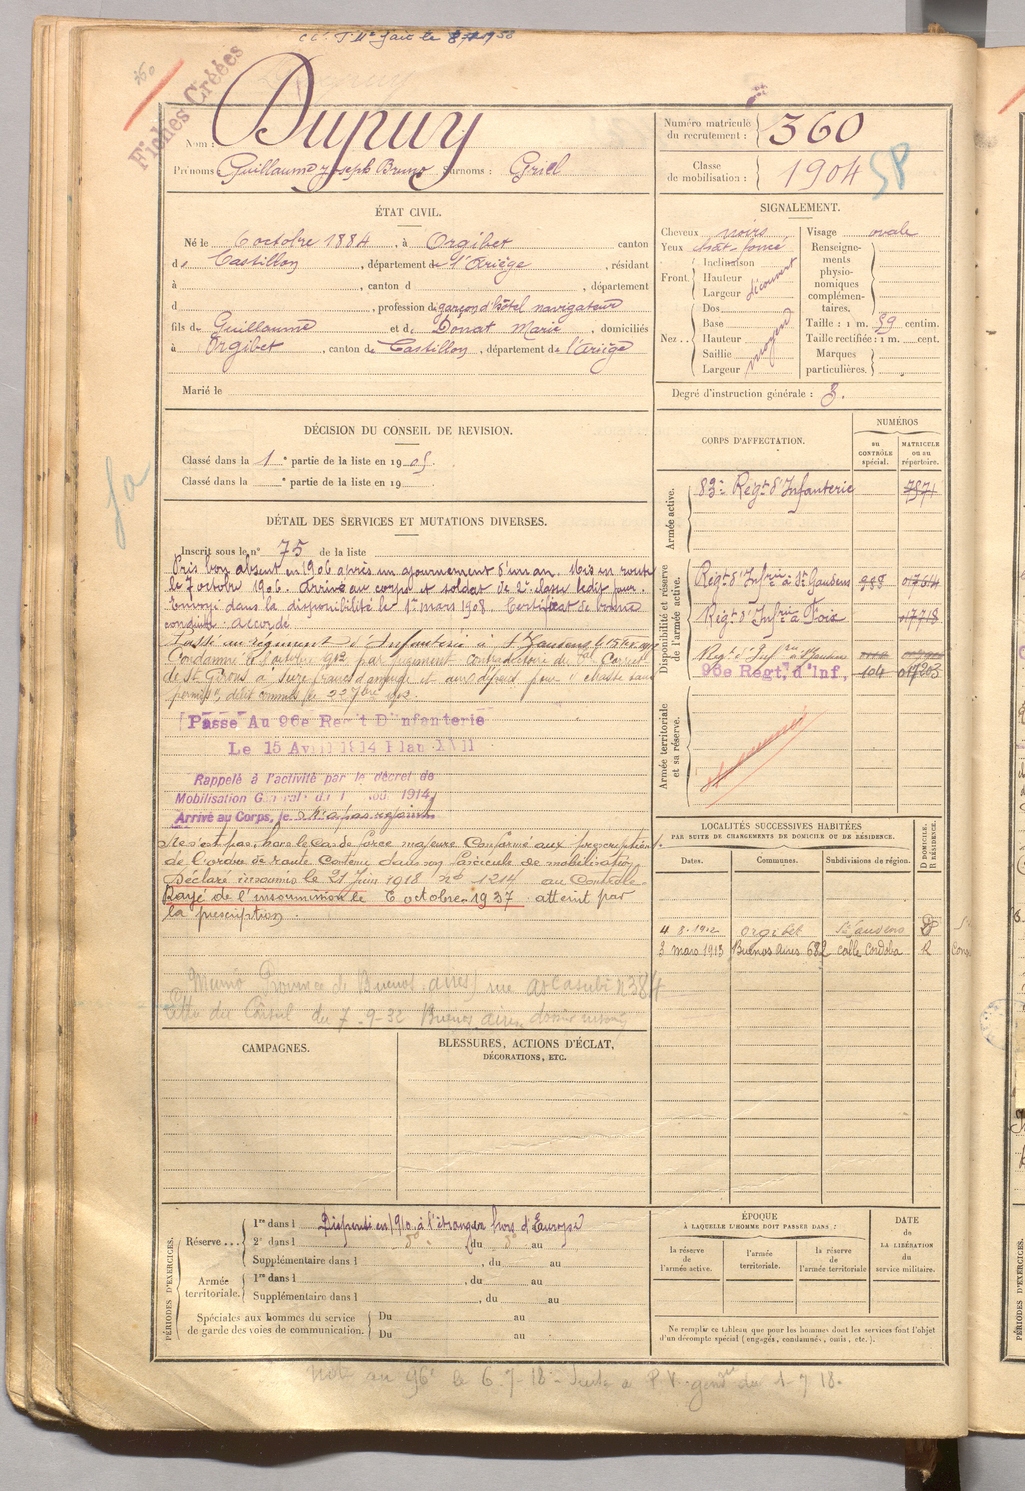 fait le
360
Fiches Créées
Nom : Dupuy
Prénoms Guillaume Joseph Bruno Surnoms : Griel
Numéro matricule du recrutement : 360
Classe de mobilisation : 1904
SP
ÉTAT CIVIL.
Né le 6 octobre 1884, à Orgibet canton
de Castillon, département de l'Ariège, résidant
à , canton d , département
d , profession de garçon d'hôtel navigateur
fils de Guillaume et de Donat Marie, domiciliés
à Orgibet, canton de Castillon, département de l'Ariège
Marié le
SIGNALEMENT.
Cheveux noirs
Yeux chat. foncé
Front. Inclinaison
Hauteur
Largeur
découvert
Nez. Dos
Base
Hauteur
Saillie
Largeur
moyen
Visage ovale
Renseignements physionomiques complémentaires.
Taille : 1 m. 59 centim.
Taille rectifiée : 1 m. cent.
Marques particulières.
Degré d'instruction générale : 3.
DÉCISION DU CONSEIL DE REVISION.
Classé dans la 1re partie de la liste en 1905.
Classé dans la e partie de la liste en 19
DÉTAIL DES SERVICES ET MUTATIONS DIVERSES.
Inscrit sous le n° 75 de la liste
Pris bon absent en 1906 après un ajournement d'un an. Mis en route
le 7 octobre 1906. Arrivé au corps et soldat de 2e classe ledit jour.
Envoyé dans la disponibilité le 1er mars 1908 Certificat de bonne
conduite accordé
Passé au régiment d'Infanterie de St Gaudens le 15
Condamné le 8 octobre 1912 par jugement contradictoire du Correct.
de St Girons à seize francs d'amende et aux dépens pour chasse sans
permis, délit commis le 22 7bre 1912.
Passé Au 96e Regt D'Infanterie
Le 15 Avril 1914 Plan XVII
Rappelé à l'activité par le décret de
Mobilisation Générale du 1 Août 1914
Arrivé au Corps, le N'a pas rejoint
Ne s'est pas, hors le cas de force majeure conformé aux prescriptions
de l'ordre de route contenu dans son fascicule de mobilisation
Déclaré insoumis le 21 Juin 1918 n° 1214 au Contrôle
Rayé de l'insoumission le 6 octobre 1937 atteint par
la prescription.
Munro Province de Buenos aires rue n°384
du Consul du 7-9-32 Buenos aires dossier
CORPS D'AFFECTATION.
NUMÉROS
au CONTRÔLE spécial.
MATRICULE ou au répertoire.
Armée active.
83e Régt d'Infanterie 7871
Disponibilité et réserve de l'armée active.
Régt d'Infrie à St Gaudens 988 017614
Régt d'Infrie à Foix 017718
Régt d'Infrie à St Gaudens
96e Regt, d'Inf, 104 017203
Armée territoriale et sa réserve.
LOCALITÉS SUCCESSIVES HABITÉES
PAR SUITE DE CHANGEMENTS DE DOMICILE OU DE RÉSIDENCE.
Dates. Communes. Subdivisions de région. D DOMICILE. R RÉSIDENCE.
4.8.1912 Orgibet St Gaudens D
3 mars 1913 Buenos aires 682 calle Cordoba R
CAMPAGNES.
BLESSURES, ACTIONS D'ÉCLAT,
DÉCORATIONS, ETC.
PÉRIODES D'EXERCICES.
Réserve... 1re dans l Dispensé en 1910 à l'étranger hors d'Europe
2e dans l do du do au
Supplémentaire dans l , du au
Armée territoriale. 1re dans l du au
Supplémentaire dans l , du au
Spéciales aux hommes du service de garde des voies de communication. Du au
Du au
ÉPOQUE
À LAQUELLE L'HOMME DOIT PASSER DANS :
la réserve de l'armée active.
l'armée territoriale.
la réserve de l'armée territoriale
DATE de LA LIBÉRATION du service militaire.
Ne remplir ce tableau que pour les hommes dont les services font l'objet
d'un décompte spécial (engagés, condamnés, omis, etc.).
Noté au 96e le 6-7-18 Suite à P.V. gendrie du 1-7-18.